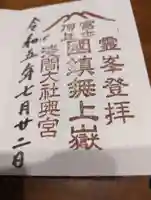 霊峯登拝
富士
増上
國鎮無上嶽
浅間大社奥宮
令和五年七月廿二日